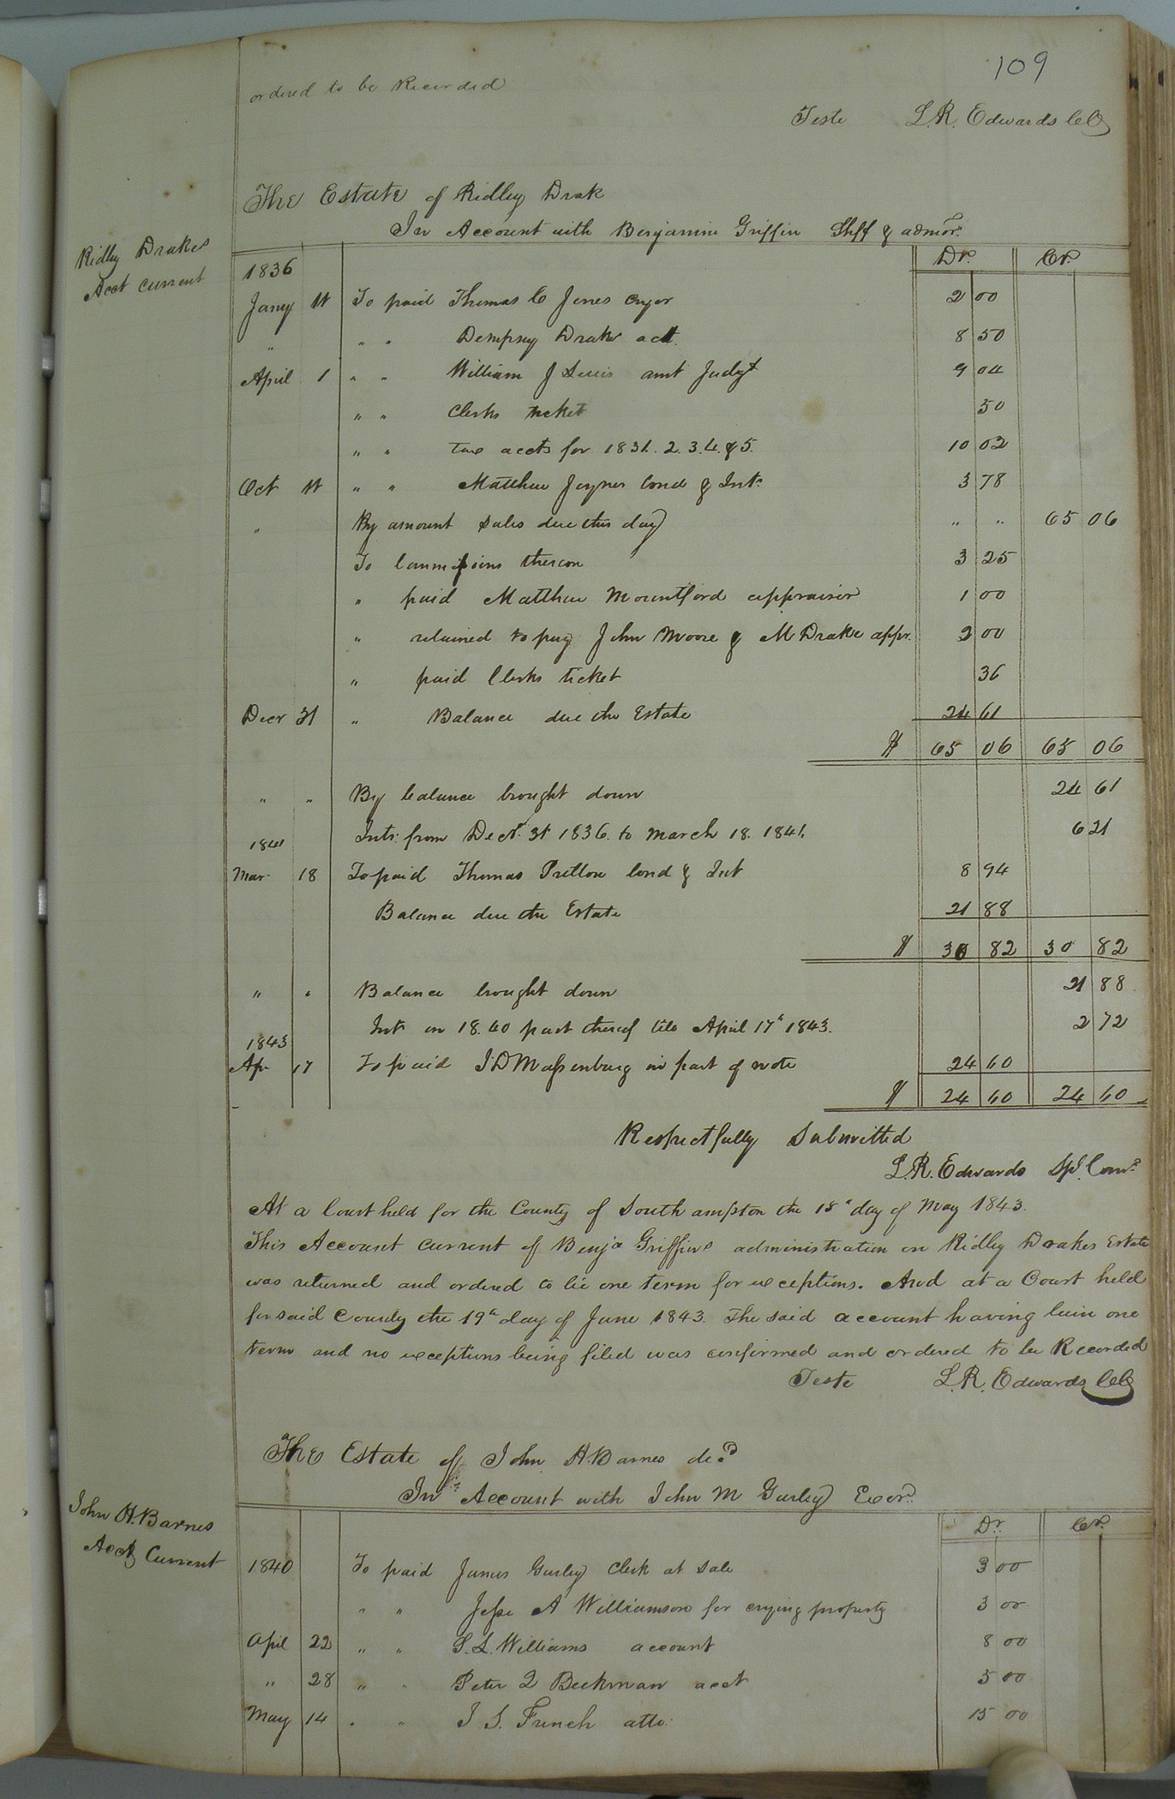 109
ordered to be Recorded
Teste L.R. Edwards CC
The Estate of Ridley Drak
In Account with Benjamin Griffin Shff & admor.
Ridley Drakes
Acct current
Dr. Cr.
1836
Jany 1st To paid Thomas C Jones cryer 2 00
" " " Dempsey Drake acct. 8 50
April 1 " " William J amt Judgt 9 04
" " Clerks ticket 50
" " Tax accts for 1831. 2. 3. 4. & 5. 10 02
Oct 1st " " Matthew Joyner bond & Int. 3 78
" By amount sales due this day " " 65 06
To Commissions thereon 3 25
" paid Matthew Mountford appraiser 1 00
" retained to pay John Moore & M Drake appr. 2 00
" paid Clerks ticket 36
Decr 31 " Balance due the Estate 24 61
$ 65 06 65 06
" " By balance brought down 24 61
Int. from Decr. 31 1836. to March 18. 1841. 6 21
1841
Mar 18 To paid Thomas Pretlow bond & Int 8 94
Balance due the Estate 21 88
$ 30 82 30 82
" " Balance brought down 21 88
Int. on 18.40 part thereof till April 17th 1843. 2 72
1843
Apr 17 To paid J D Massenburg in part of note 24 60
$ 24 60 24 60
Respectfully Submitted
L.R. Edwards Spl. Comr.
At a Court held for the County of Southampton the 15th day of May 1843.
This Account Current of Benja Griffins administration on Ridley Drakes Estate
was returned and ordered to lie one term for exceptions. And at a Court held
for said County the 19th day of June 1843. The said account having lain one
term and no exceptions being filed was confirmed and ordered to be Recorded
Teste L.R. Edwards CC
The Estate of John H. Barnes decd
In Account with John M Gurley Exor.
John H. Barnes
Acct Current
Dr. Cr.
1840 To paid James Gurley Clerk at Sale 3 00
" " Jesse A Williamson for crying property 3 00
April 22 " " S.L. Williams account 8 00
" 28 " " Peter Q Beekman acct 5 00
May 14 " " J S. French atto. 15 00